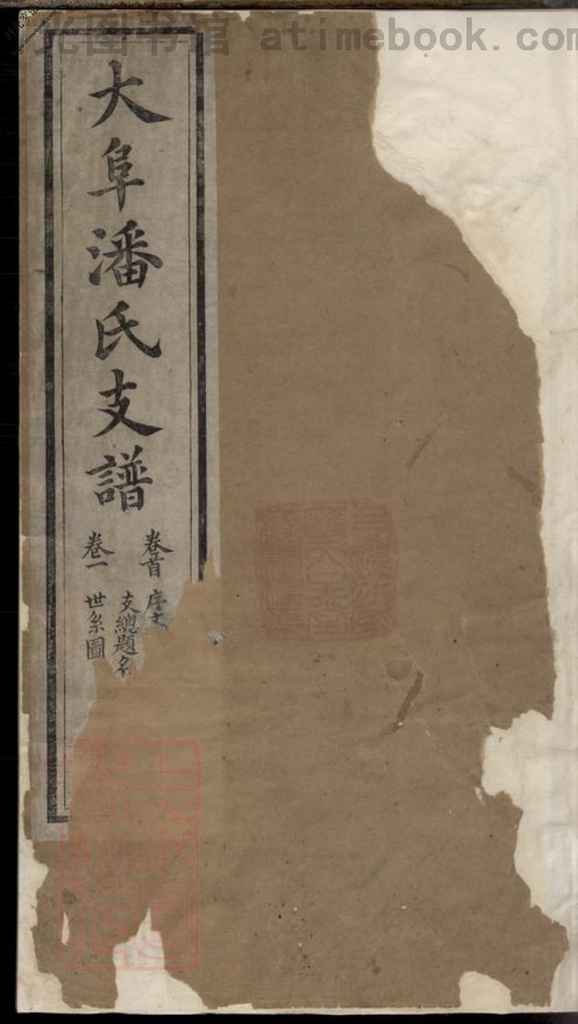 光图书馆 atimebook.com
大阜潘氏支譜
卷首 序文
支總題名
卷一 世系圖